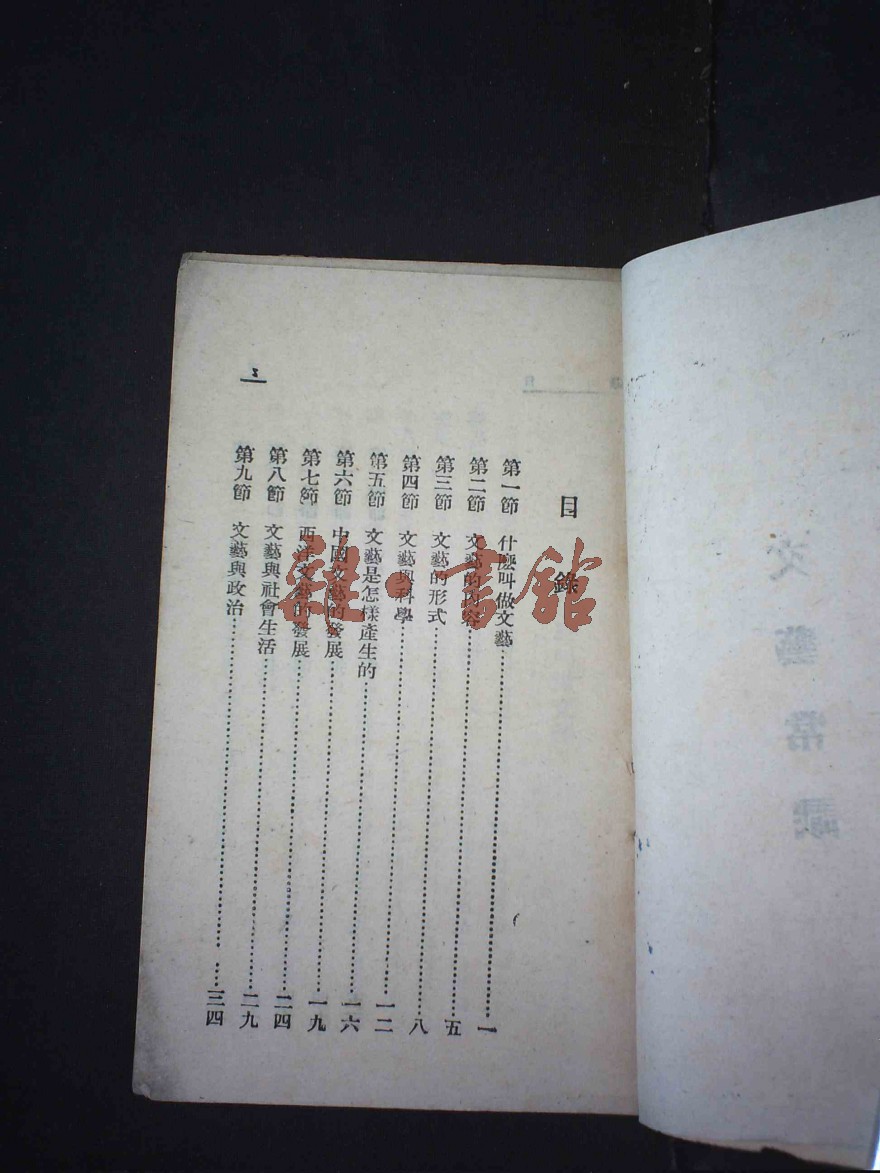 目錄
第一節 什麽叫做文藝……一
第二節 文藝的內容……五
第三節 文藝的形式……八
第四節 文藝與科學……一二
第五節 文藝是怎樣產生的……一六
第六節 中國文藝的發展……一九
第七節 西洋文藝的發展……二四
第八節 文藝與社會生活……二九
第九節 文藝與政治……三四
文藝常識
雜·書館